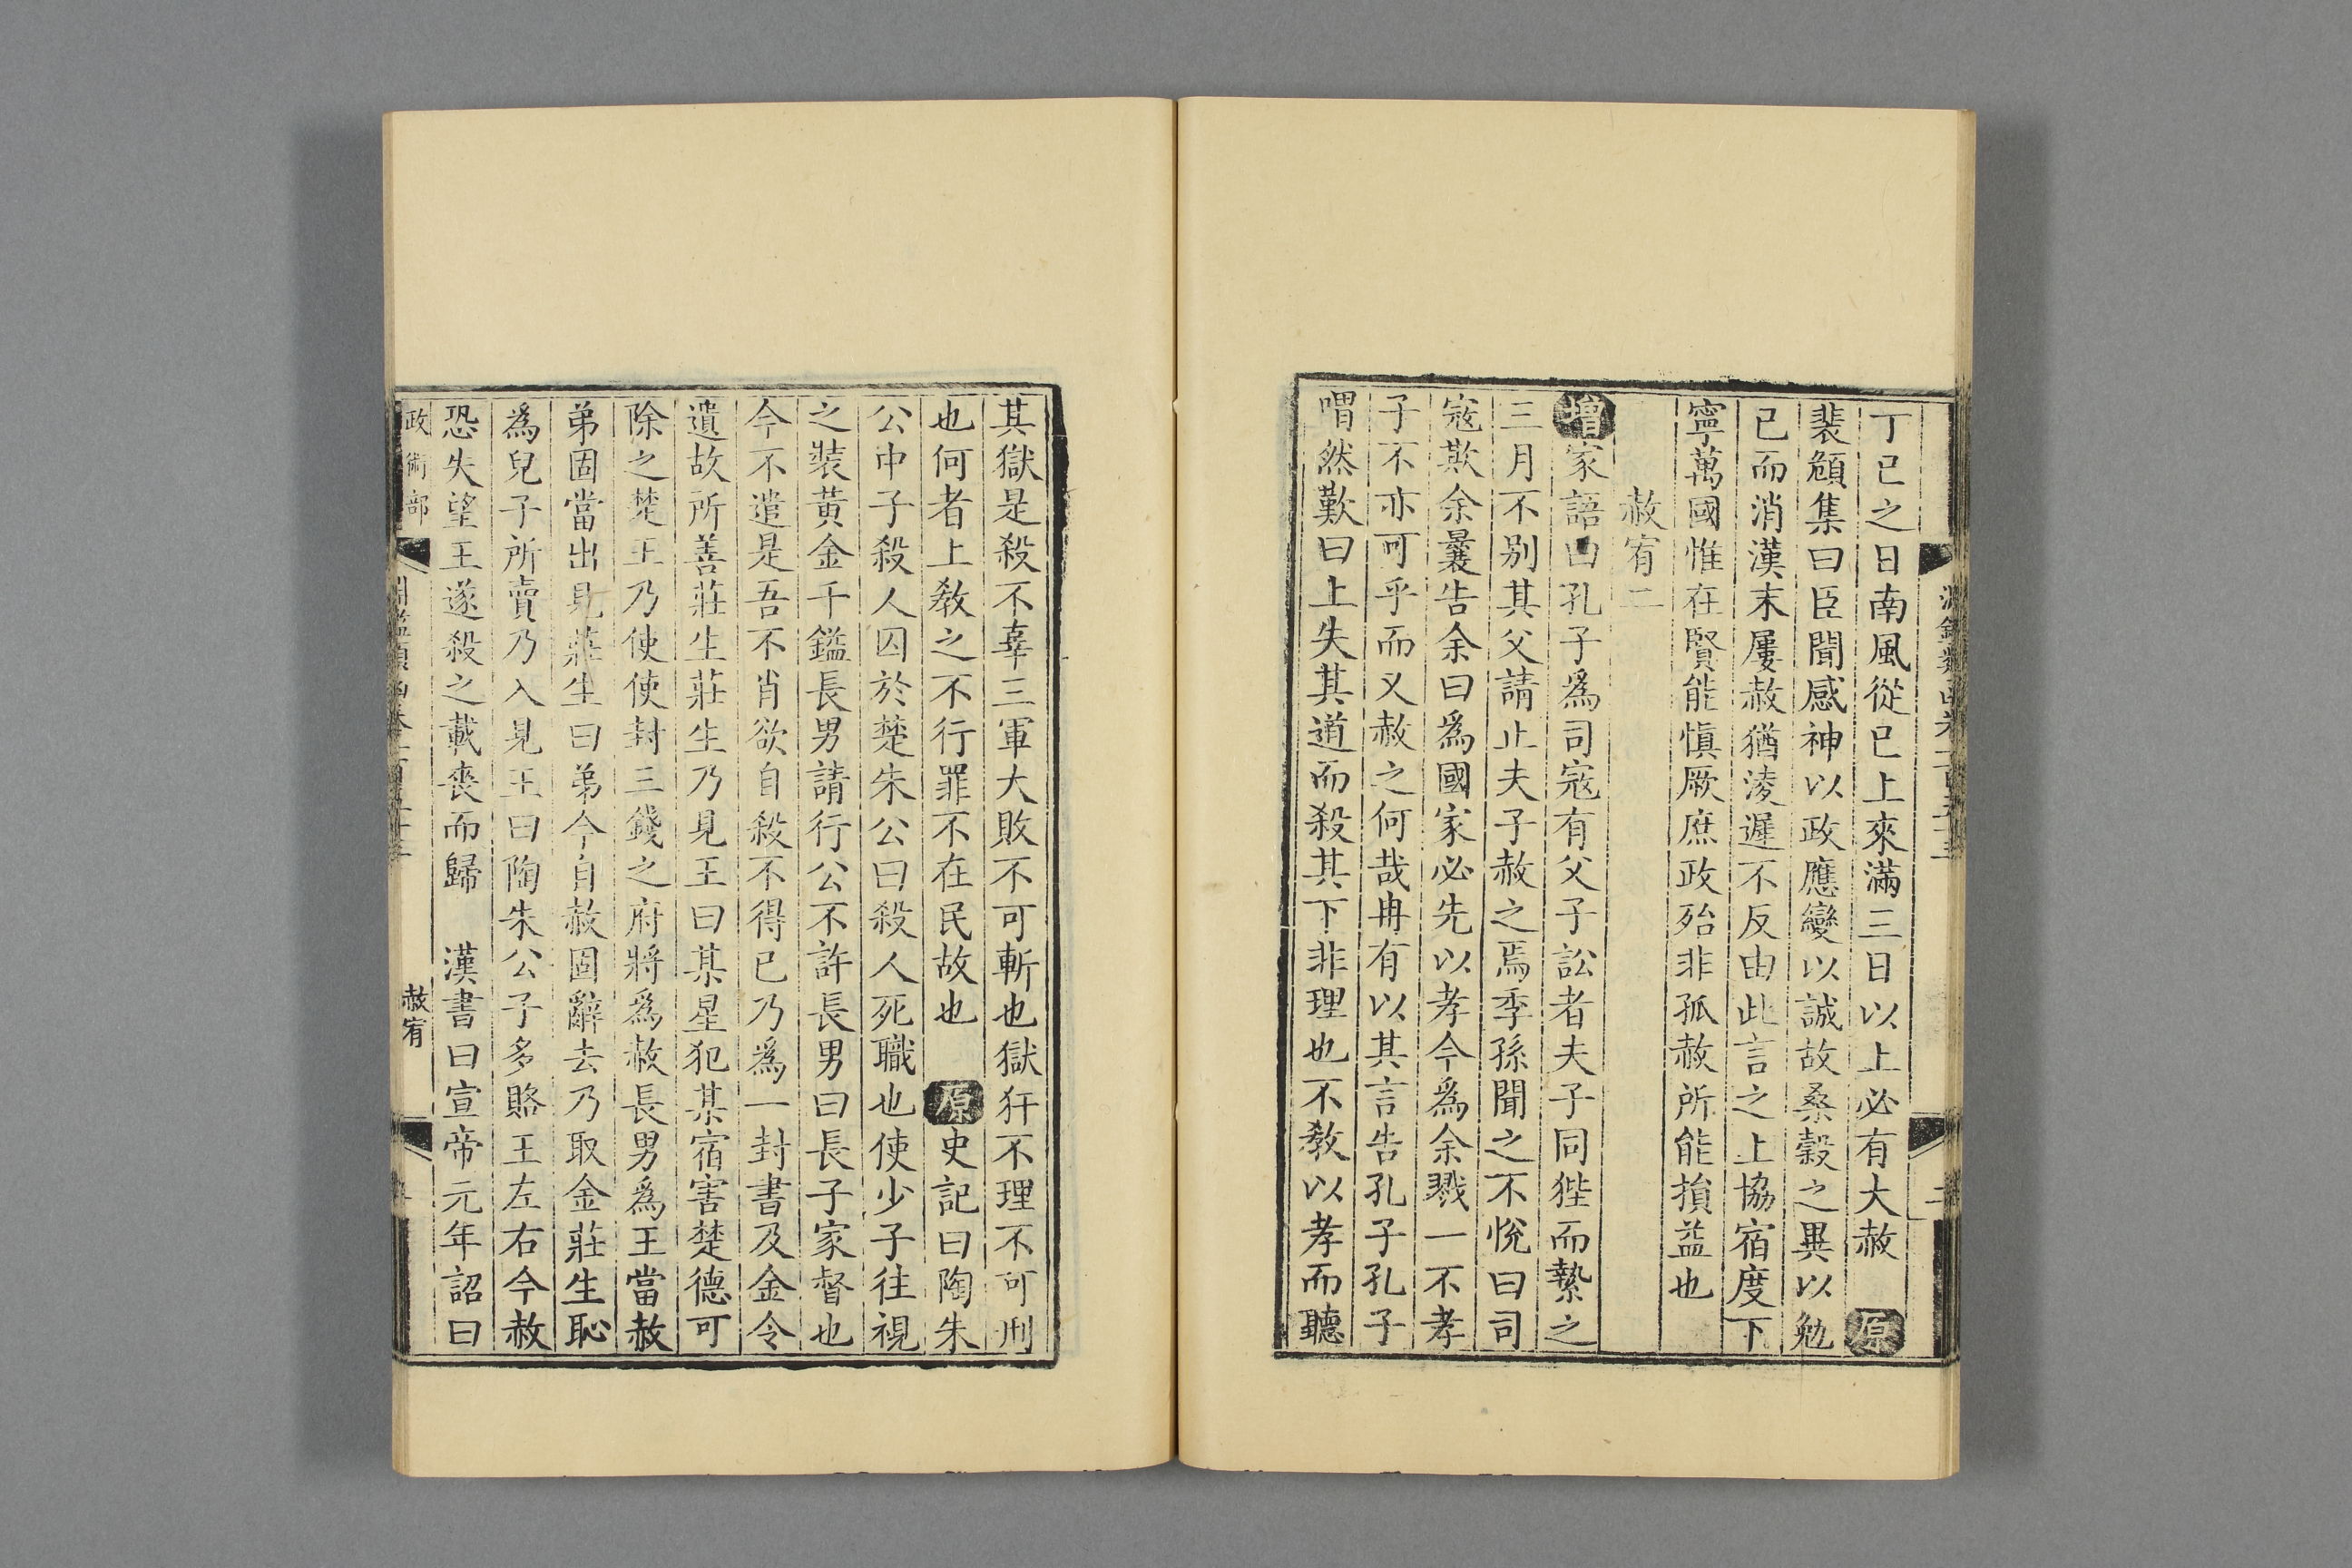 丁巳之日南風從巳上來滿三日以上必有大赦　原
裴頠集曰臣聞感神以政應變以誠故桑穀之異以勉
已而消漢末屢赦猶淩遲不反由此言之上協宿度下
寧萬國惟在賢能慎厥庶政殆非孤赦所能損益也
赦宥二
增家語曰孔子爲司寇有父子訟者夫子同狴而縶之
三月不别其父請止夫子赦之焉季孫聞之不悅曰司
寇欺余曩告余曰爲國家必先以孝今爲余戮一不孝
子不亦可乎而又赦之何哉冉有以其言告孔子孔子
喟然歎曰上失其道而殺其下非理也不教以孝而聽
其獄是殺不辜三軍大敗不可斬也獄犴不理不可刑
也何者上教之不行罪不在民故也　原史記曰陶朱
公中子殺人囚於楚朱公曰殺人死職也使少子往視
之裝黃金千鎰長男請行公不許長男曰長子家督也
今不遣是吾不肖欲自殺不得已乃爲一封書及金令
遺故所善莊生莊生乃見王曰某星犯某宿害楚德可
除之楚王乃使使封三錢之府將爲赦長男爲王當赦
弟固當出見莊生曰弟今自赦固辭去乃取金莊生恥
為兒子所賣乃入見王曰陶朱公子多賂王左右今赦
恐失望王遂殺之載喪而歸　漢書曰宣帝元年詔曰
政術部
赦宥